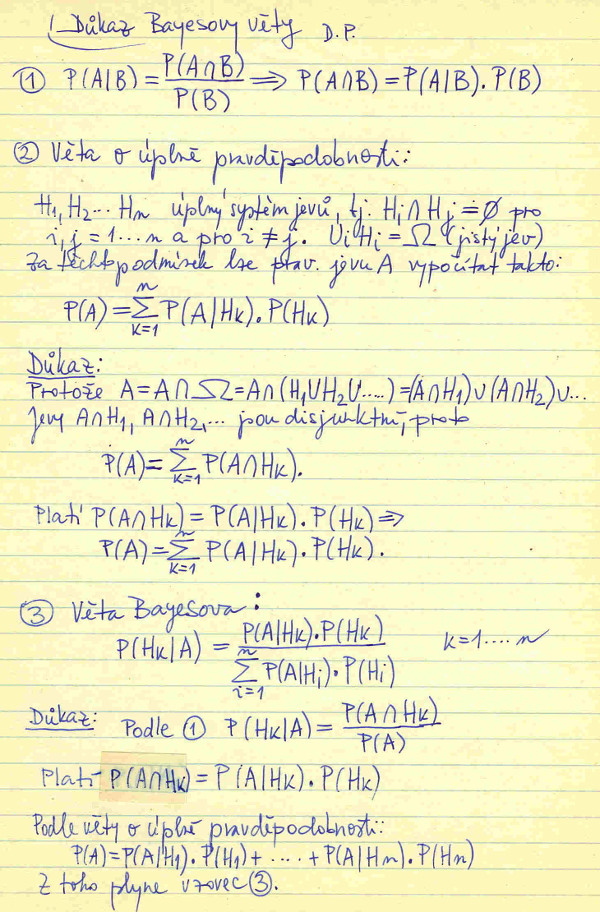 Důkaz Bayesovy věty D.P.
① P(A|B) = P(A∩B) / P(B) ⟹ P(A∩B) = P(A|B). P(B)
② Věta o úplné pravděpodobnosti:
H₁, H₂ ... Hₙ úplný systém jevů, tj. Hᵢ ∩ Hⱼ = ∅ pro
i, j = 1 ... n a pro i ≠ j. ∪ᵢ Hᵢ = Ω (jistý jev)
Za těchto podmínek lze prav. jevu A vypočítat takto:
P(A) = ∑ₖ₌₁ⁿ P(A|Hₖ). P(Hₖ)
Důkaz:
Protože A = A∩Ω = A∩(H₁∪H₂∪.....) = (A∩H₁)∪(A∩H₂)∪...
Jevy A∩H₁, A∩H₂, ... jsou disjunktní, proto
P(A) = ∑ₖ₌₁ⁿ P(A∩Hₖ).
Platí P(A∩Hₖ) = P(A|Hₖ). P(Hₖ) ⟹
P(A) = ∑ₖ₌₁ⁿ P(A|Hₖ). P(Hₖ).
③ Věta Bayesova:
P(Hₖ|A) = P(A|Hₖ). P(Hₖ) / ∑ᵢ₌₁ⁿ P(A|Hᵢ). P(Hᵢ) k = 1 .... n
Důkaz: Podle ① P(Hₖ|A) = P(A∩Hₖ) / P(A)
Platí P(A∩Hₖ) = P(A|Hₖ). P(Hₖ)
Podle věty o úplné pravděpodobnosti:
P(A) = P(A|H₁). P(H₁) + ..... + P(A|Hₙ). P(Hₙ)
Z toho plyne vzorec ③.